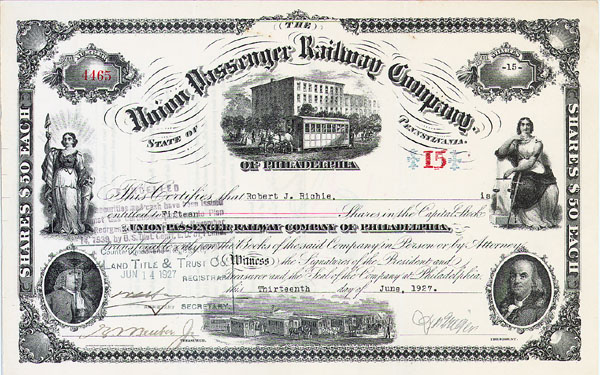 THE
4465
-15-
Union Passenger Railway Company,
STATE OF
PENNSYLVANIA.
OF PHILADELPHIA
15
SHARES $50 EACH
SHARES $50 EACH
This Certifies that Robert J. Richie. is
entitled to Fifteen Shares in the Capital Stock
UNION PASSENGER RAILWAY COMPANY OF PHILADELPHIA,
transferable only on the Books of the said Company in Person or by Attorney
Countersigned
LAND TITLE & TRUST CO.
Witness the Signatures of the President and
JUN 14 1927
REGISTRAR
Treasurer and the Seal of the Company at Philadelphia
this Thirteenth day of June, 1927.
SECRETARY
TREASURER.
PRESIDENT.